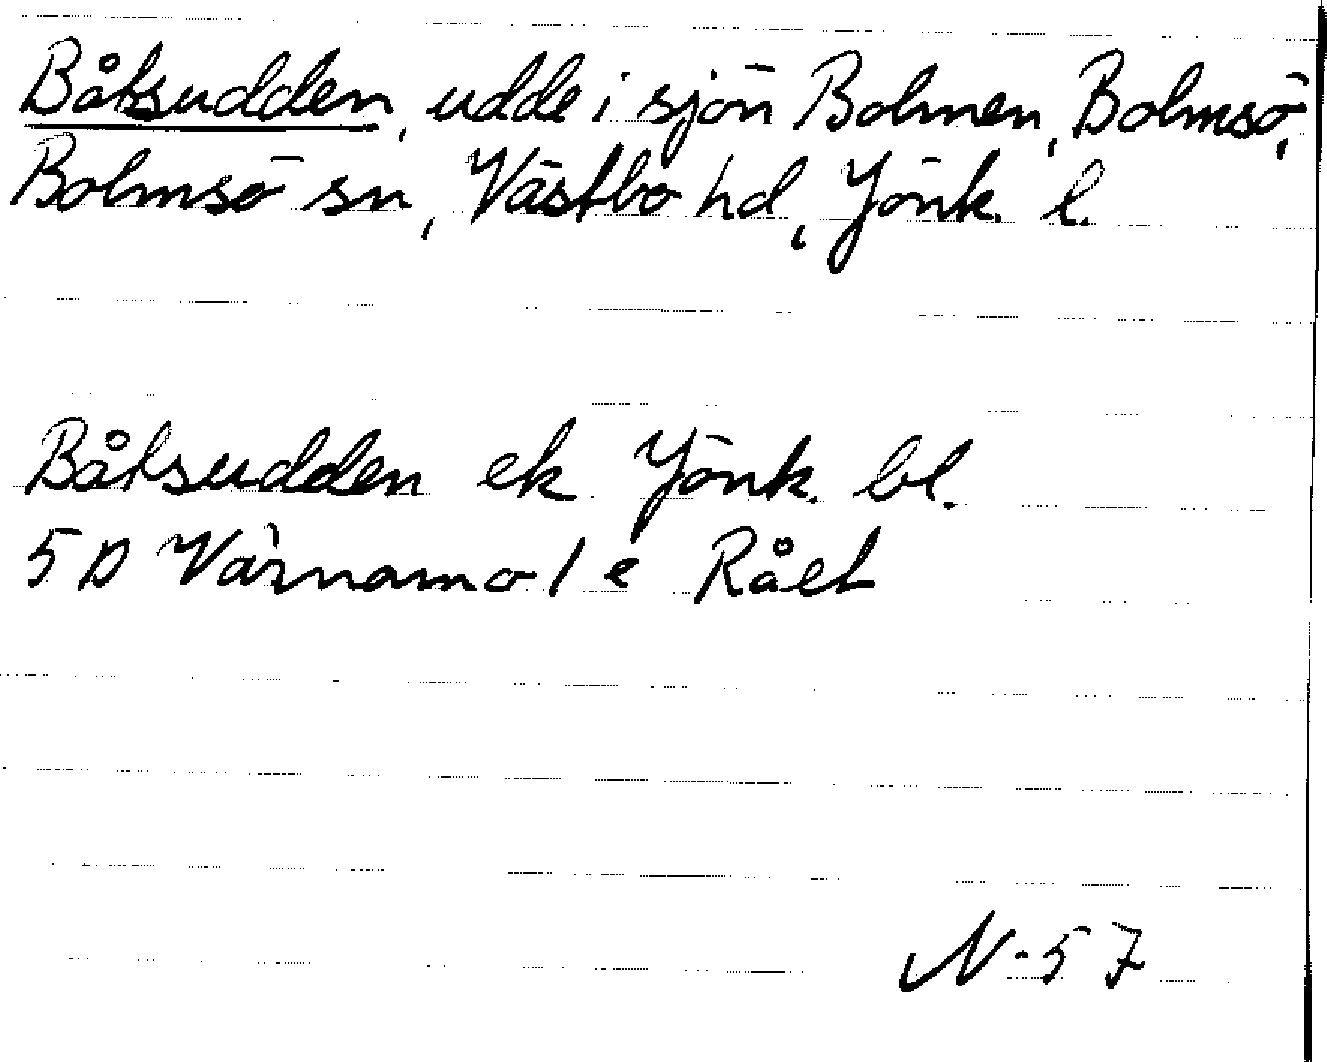 Båksudden, udde i sjön Bolmen, Bolmsö,
Bolmsö sn, Västbo hd, Jönk. l.
Båksudden ek Jönk. bl.
5D Värnamo 1 e Rået
N-57